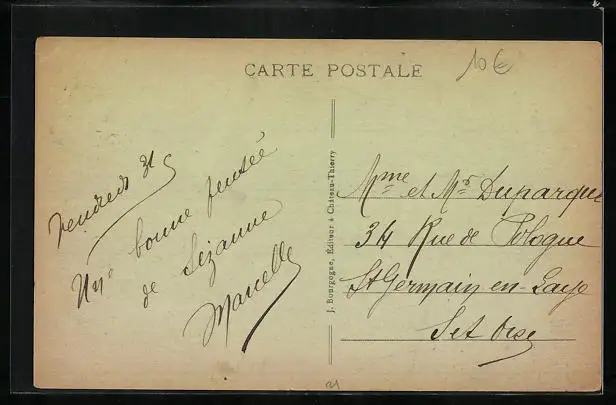 CARTE POSTALE
10€
Vendredi 31
Une bonne pensée
de Sézanne
Marcelle
J. Bourgogne, Éditeur à Château-Thierry
Mme et Mr Duparque
34 Rue de Pologne
St Germain-en-Laye
S et Oise